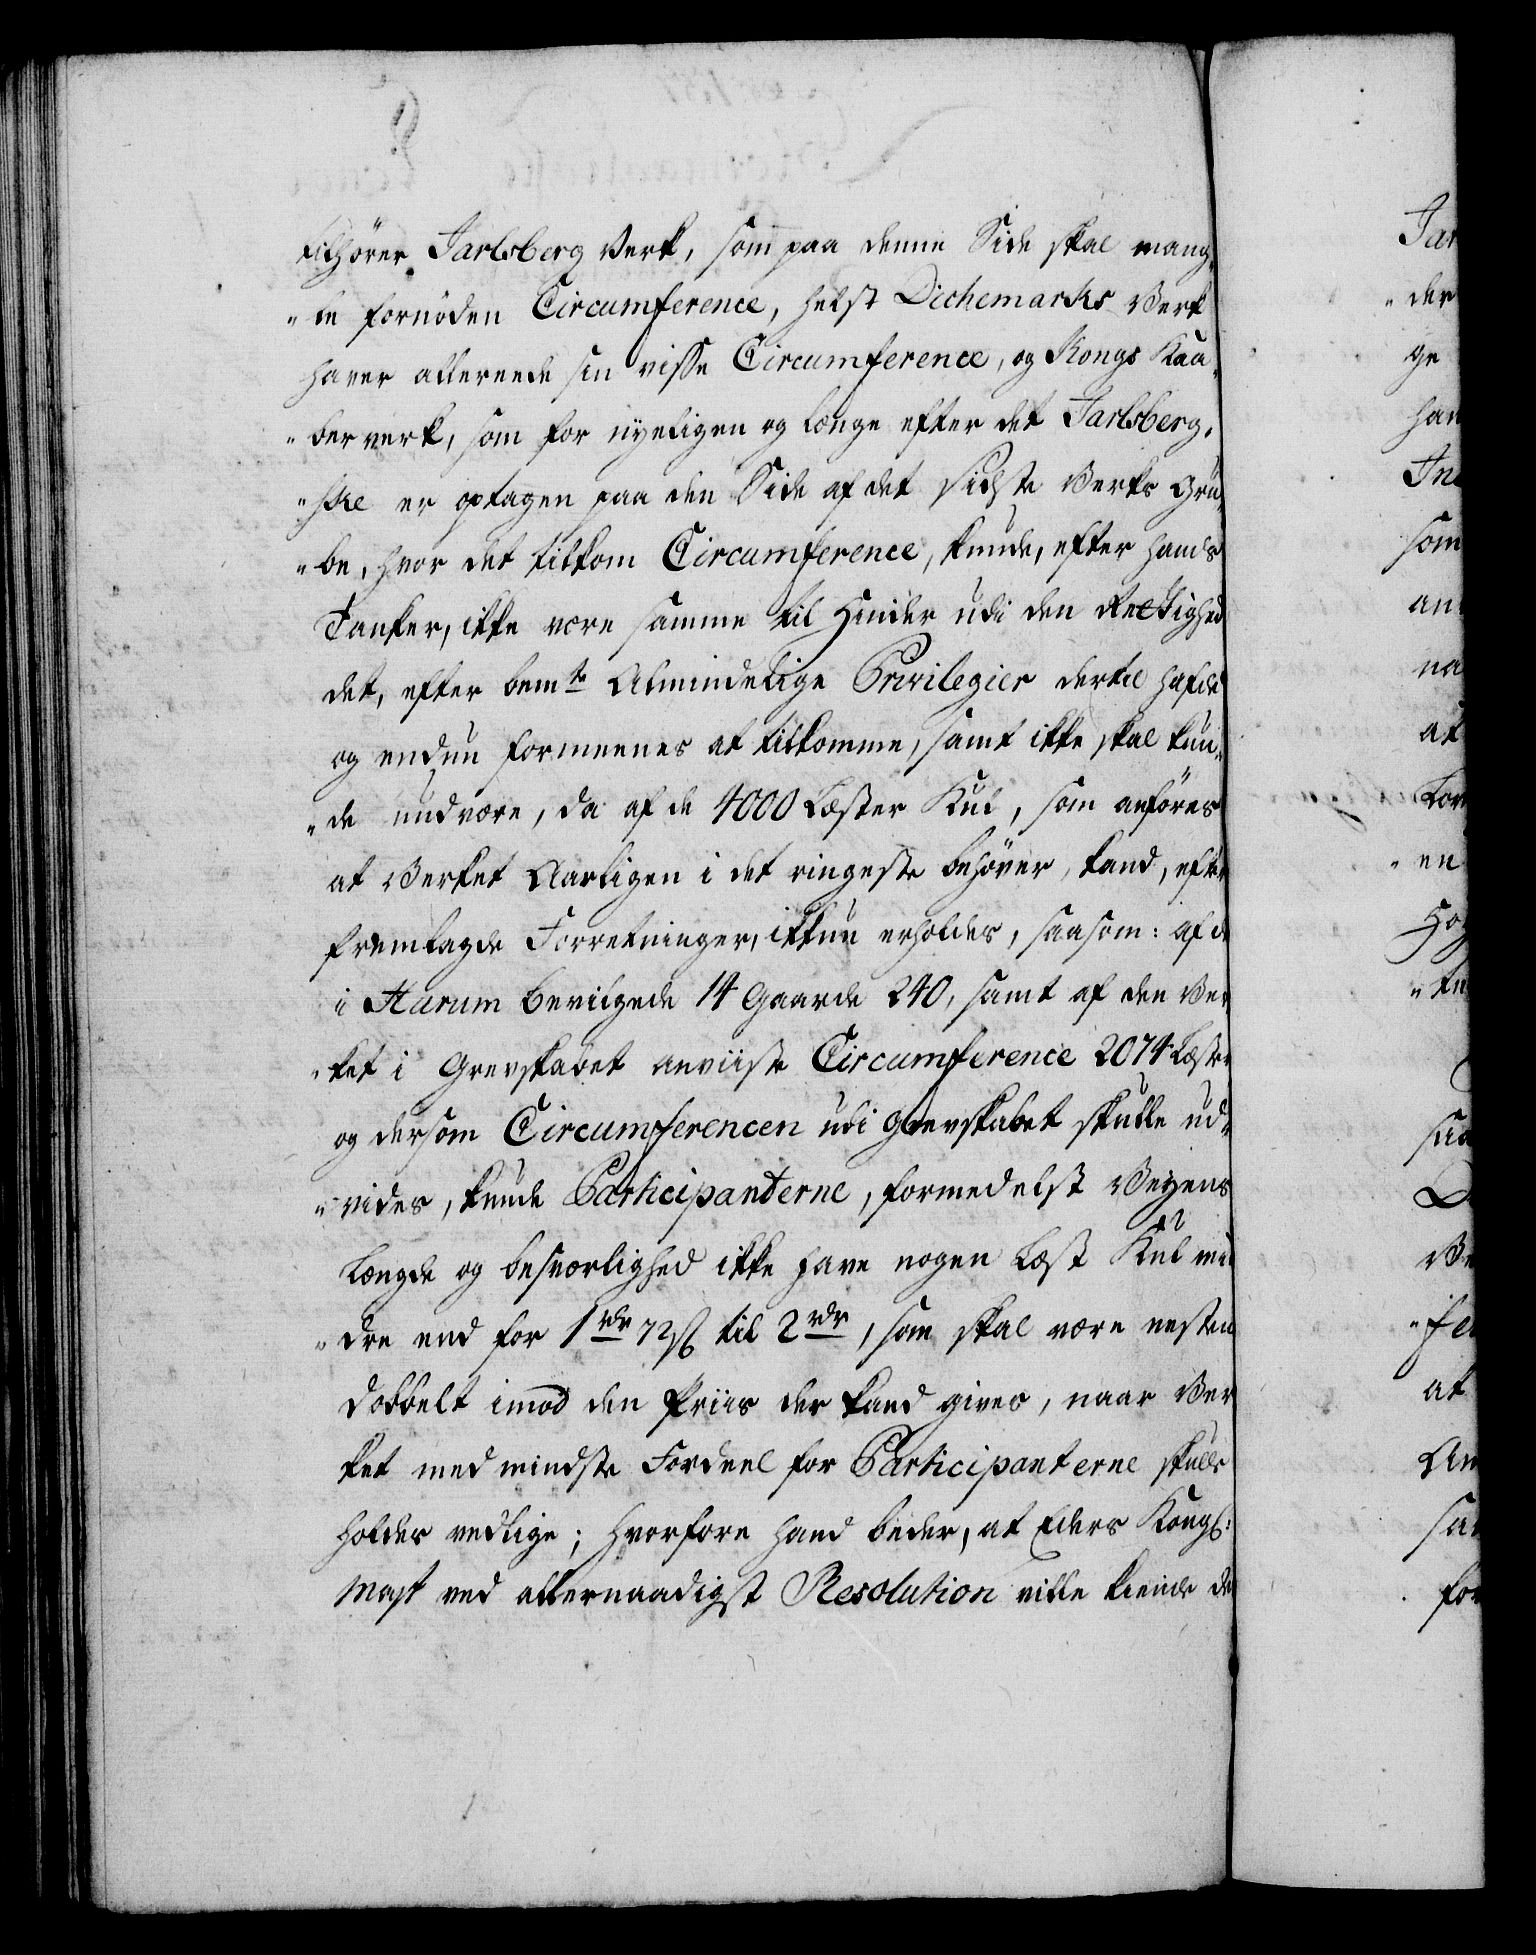 tilhörer Jarlsberg Verk, som paa denne Side skal mang„
„le fornöden Circumference, helst Dichemarks Verk
haver allereede sin visse Circumference, og Kongs Kaa„
„berverk, som for nyeligen og længe efter det Jarlsberg„
„ske er optagen paa den Side af det sidste Verks Gru„
„be, hvor det tilkom Circumference, kunde, efter hands
Tanker, ikke være samme til Hinder udi den Rettighed
det, efter bemte Almindelige Privilegier dertil hafde
og endnu formeenes at tilkomme, samt ikke skal kun„
„de undvære, da af de 4000 Læster Kul, som anföres
at Verket Aarligen i det ringeste behöver, kand, efter
fremlagde Forretninger, ikkun erholdes, saasom: af de
i Hurum bevilgede 14 Gaarde 240, samt af den Ver
„ket i Grevskabet anviiste Circumference 2074 Læster
og dersom Circumferencen udi Grevskabet skulle ud„
„vides, kunde Participanterne, formedelst Veyens
Længde og besværlighed ikke have nogen Læst Kul min
„dre end for 1 rdr 72 ß til 2 rdr, som skal være nesten
dobbelt imod den Priis der kand gives, naar Ver
ket med mindste Fordeel for Participanterne skulle
holdes vedlige; hvorfore hand beder, at Eders Kongl:
Mayt ved allernaadigst Resolution ville kiende de
Jar
„der
ge
han
In
som
an
na
at
en
Hog
saa
Ve
„fe
at
An
sa
for